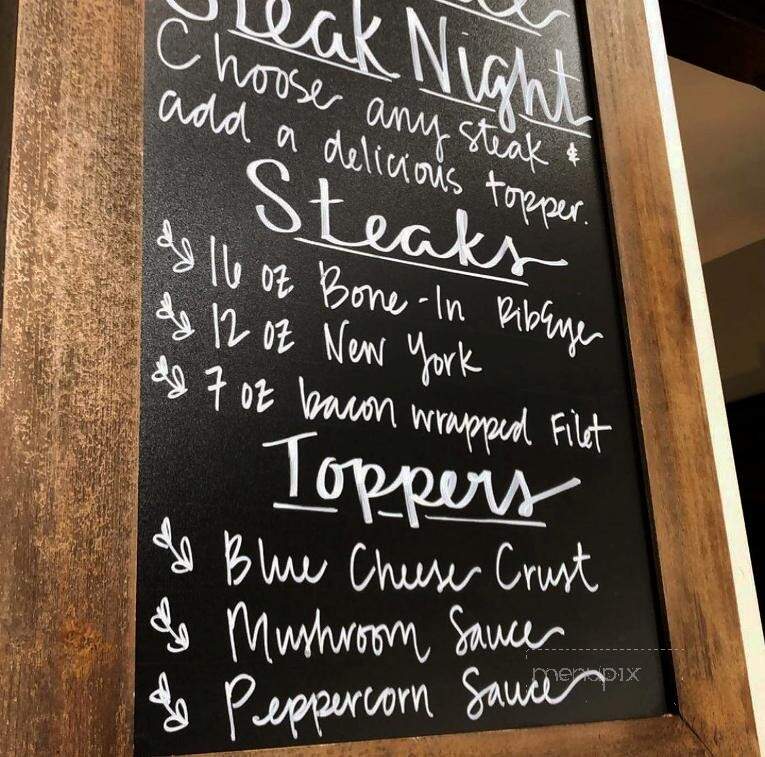 Steak Night
Choose any steak &
add a delicious topper.
Steaks
16 oz Bone-In RibEye
12 oz New York
7 oz bacon wrapped Filet
Toppers
Blue Cheese Crust
Mushroom Sauce
Peppercorn Sauce
menupix